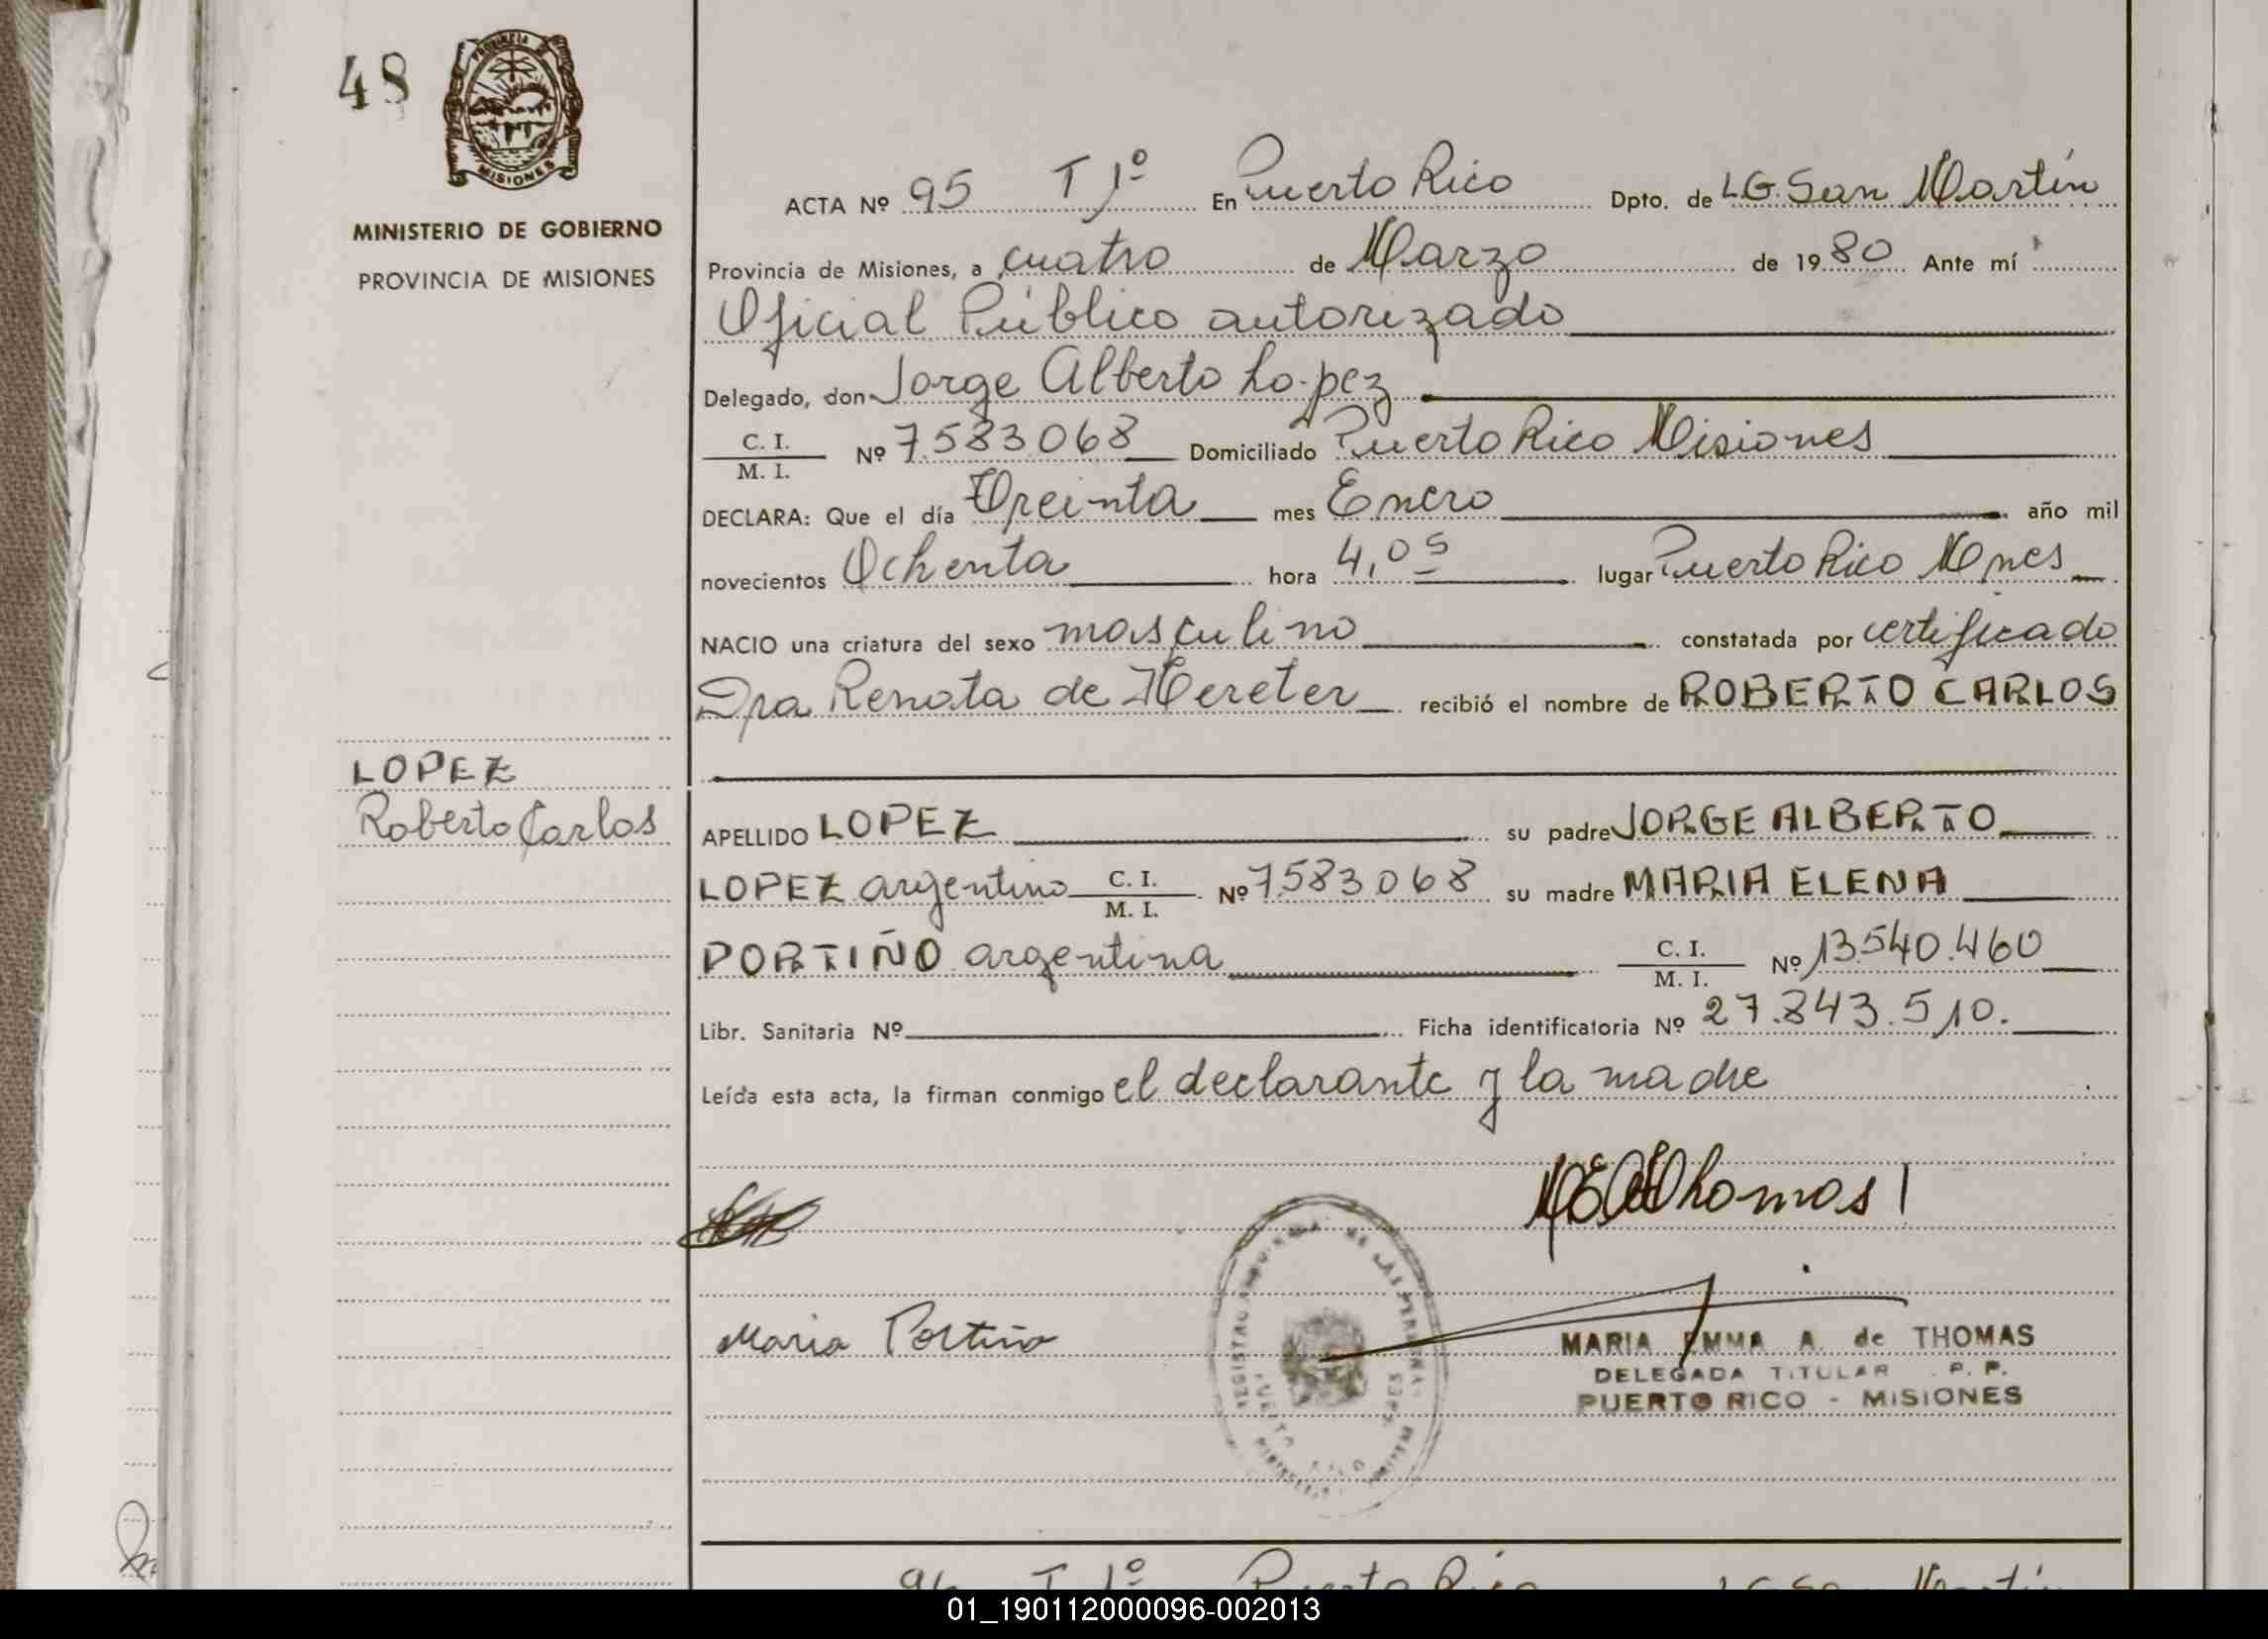 48
PROVINCIA DE
MISIONES
MINISTERIO DE GOBIERNO
PROVINCIA DE MISIONES
LOPEZ
Roberto Carlos
ACTA Nº 95 T 1º En Puerto Rico Dpto. de L.G. San Martín
Provincia de Misiones, a cuatro de Marzo de 1980 Ante mí
Oficial Público autorizado
Delegado, don Jorge Alberto Lopez
C. I. / M. I. Nº 7.583.068 Domiciliado Puerto Rico Misiones
DECLARA: Que el día Treinta mes Enero año mil
novecientos Ochenta hora 4,05 lugar Puerto Rico Mnes
NACIO una criatura del sexo masculino constatada por certificado
Dra Renata de Hereter recibió el nombre de ROBERTO CARLOS
APELLIDO LOPEZ su padre JORGE ALBERTO
LOPEZ argentino C. I. / M. I. Nº 7.583.068 su madre MARIA ELENA
PORTIÑO argentina C. I. / M. I. Nº 13.540.460
Libr. Sanitaria Nº Ficha identificatoria Nº 27.843.510.
Leída esta acta, la firman conmigo el declarante y la madre
Thomas
Maria Portiño
MARIA EMMA A. de THOMAS
DELEGADA TITULAR P. P.
PUERTO RICO - MISIONES
REGISTRO DE LAS PERSONAS
PUERTO RICO
96 T 1º Puerto Rico L.G. San Martín
01_190112000096-002013